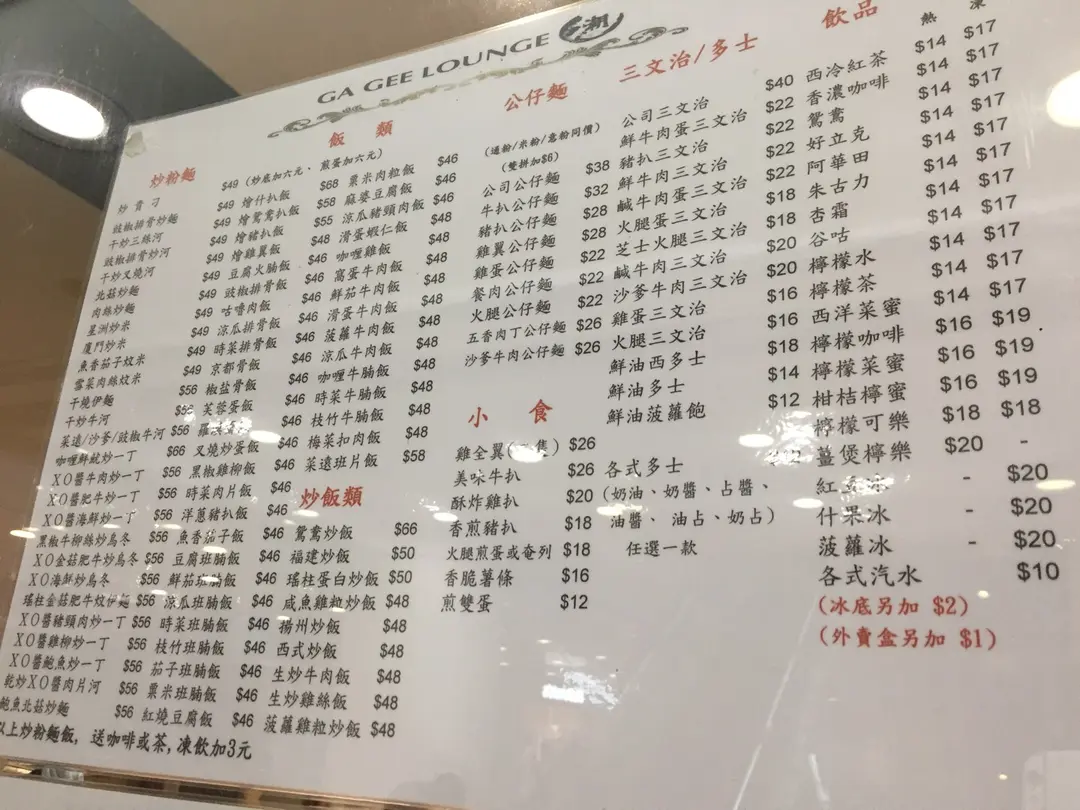 GA GEE LOUNGE 潮
炒粉麵
炒貴刁 $49
豉椒排骨炒麵 $49
干炒三絲河 $49
豉椒排骨炒河 $49
干炒叉燒河 $49
北菇炒麵 $49
肉絲炒麵 $49
星洲炒米 $49
廈門炒米 $49
魚香茄子炆米 $49
雪菜肉絲炆米 $49
干燒伊麵
干炒牛河
菜遠/沙爹/豉椒牛河 $56
咖喱鮮魷炒一丁 $66
XO醬牛肉炒一丁 $56
XO醬肥牛炒一丁 $56
XO醬海鮮炒一丁 $56
黑椒牛柳絲炒烏冬 $56
XO金菇肥牛炒烏冬 $56
XO海鮮炒烏冬 $56
瑤柱金菇肥牛炆伊麵 $56
XO醬豬頸肉炒一丁 $56
XO醬雞柳炒一丁 $56
XO醬鮑魚炒一丁 $56
乾炒XO醬肉片河 $56
鮑魚北菇炒麵 $56
以上炒粉麵飯, 送咖啡或茶, 凍飲加3元
飯類
(炒底加六元、煎蛋加六元)
燴什扒飯 $68
燴鴛鴦扒飯 $58
燴豬扒飯 $55
燴雞翼飯 $48
豆腐火腩飯 $46
豉椒排骨飯 $46
咕嚕肉飯 $46
涼瓜排骨飯 $46
時菜排骨飯 $46
京都骨飯 $46
椒鹽骨飯 $46
芙蓉蛋飯 $46
叉燒炒蛋飯 $46
黑椒雞柳飯 $46
時菜肉片飯 $46
洋蔥豬扒飯 $46
魚香茄子飯 $46
豆腐班腩飯 $46
鮮茄班腩飯 $46
涼瓜班腩飯 $46
時菜班腩飯 $46
枝竹班腩飯 $46
茄子班腩飯 $46
粟米班腩飯 $46
紅燒豆腐飯 $46
粟米肉粒飯 $46
麻婆豆腐飯 $46
涼瓜豬頸肉飯 $46
滑蛋蝦仁飯 $48
咖喱雞飯 $48
窩蛋牛肉飯 $48
鮮茄牛肉飯 $48
滑蛋牛肉飯 $48
菠蘿牛肉飯 $48
涼瓜牛肉飯 $48
咖喱牛腩飯 $48
時菜牛腩飯 $48
枝竹牛腩飯 $48
梅菜扣肉飯 $48
菜遠班片飯 $58
炒飯類
鴛鴦炒飯 $66
福建炒飯 $50
瑤柱蛋白炒飯 $50
咸魚雞粒炒飯 $48
揚州炒飯 $48
西式炒飯 $48
生炒牛肉飯 $48
生炒雞絲飯 $48
菠蘿雞粒炒飯 $48
公仔麵
(通粉/米粉/意粉同價)
(雙拼加$6)
公司公仔麵 $38
牛扒公仔麵 $32
豬扒公仔麵 $28
雞翼公仔麵 $28
雞蛋公仔麵 $22
餐肉公仔麵 $22
火腿公仔麵 $22
五香肉丁公仔麵 $26
沙爹牛肉公仔麵 $26
小食
雞全翼 $26
美味牛扒 $26
酥炸雞扒 $20
香煎豬扒 $18
火腿煎蛋或奄列 $18
香脆薯條 $16
煎雙蛋 $12
三文治/多士
公司三文治 $40
鮮牛肉蛋三文治 $22
豬扒三文治 $22
鮮牛肉三文治 $22
鹹牛肉蛋三文治 $22
火腿蛋三文治 $18
芝士火腿三文治 $18
鹹牛肉三文治 $20
沙爹牛肉三文治 $20
雞蛋三文治 $16
火腿三文治 $16
鮮油西多士 $18
鮮油多士 $14
鮮油菠蘿飽 $12
各式多士
(奶油、奶醬、占醬、
油醬、油占、奶占)
任選一款
飲品
熱 凍
西冷紅茶 $14 $17
香濃咖啡 $14 $17
鴛鴦 $14 $17
好立克 $14 $17
阿華田 $14 $17
朱古力 $14 $17
杏霜 $14 $17
谷咕 $14 $17
檸檬水 $14 $17
檸檬茶 $14 $17
西洋菜蜜 $14 $17
檸檬咖啡 $16 $19
檸檬菜蜜 $16 $19
柑桔檸蜜 $16 $19
檸檬可樂 $18 $18
薑煲檸樂 $20 -
- $20
什果冰 - $20
菠蘿冰 - $20
各式汽水 $10
(冰底另加 $2)
(外賣盒另加 $1)